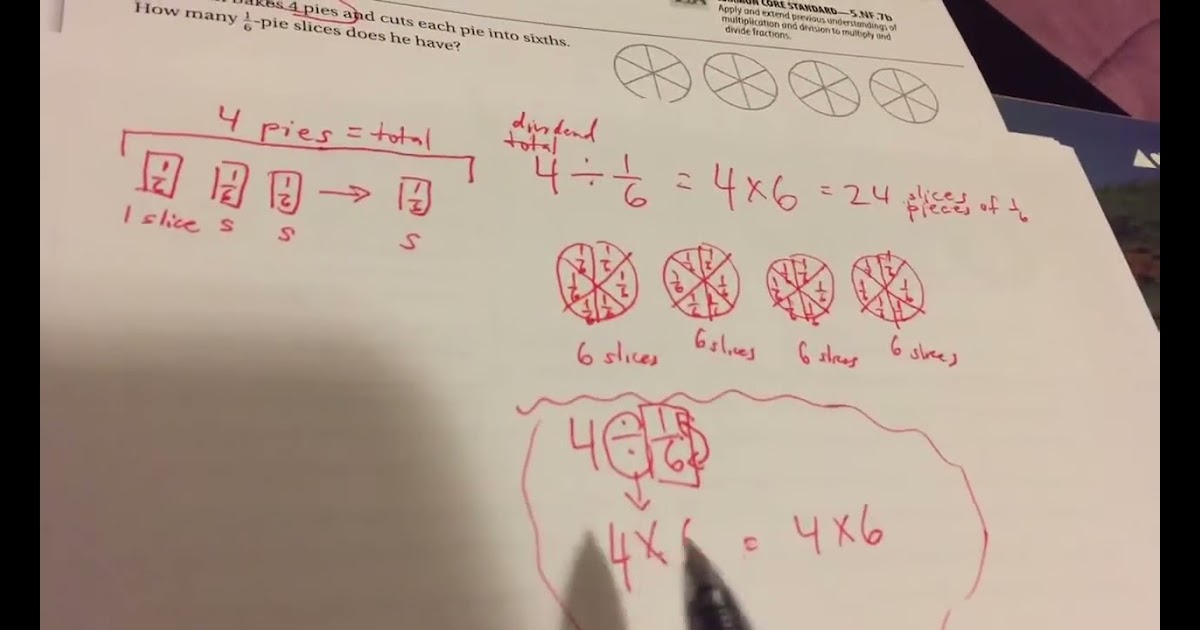 4 pies and cuts each pie into sixths.
How many 1/6-pie slices does he have?
CORE STANDARD—5.NF.7b
Apply and extend previous understandings of
multiplication and division to multiply and
divide fractions.
4 pies = total
1 slice s s s
dividend
total
4 ÷ 1/6 = 4 x 6 = 24 slices
pieces of 1/6
6 slices 6 slices 6 slices 6 slices
4 ÷ 1/6
4 x 6 = 4 x 6